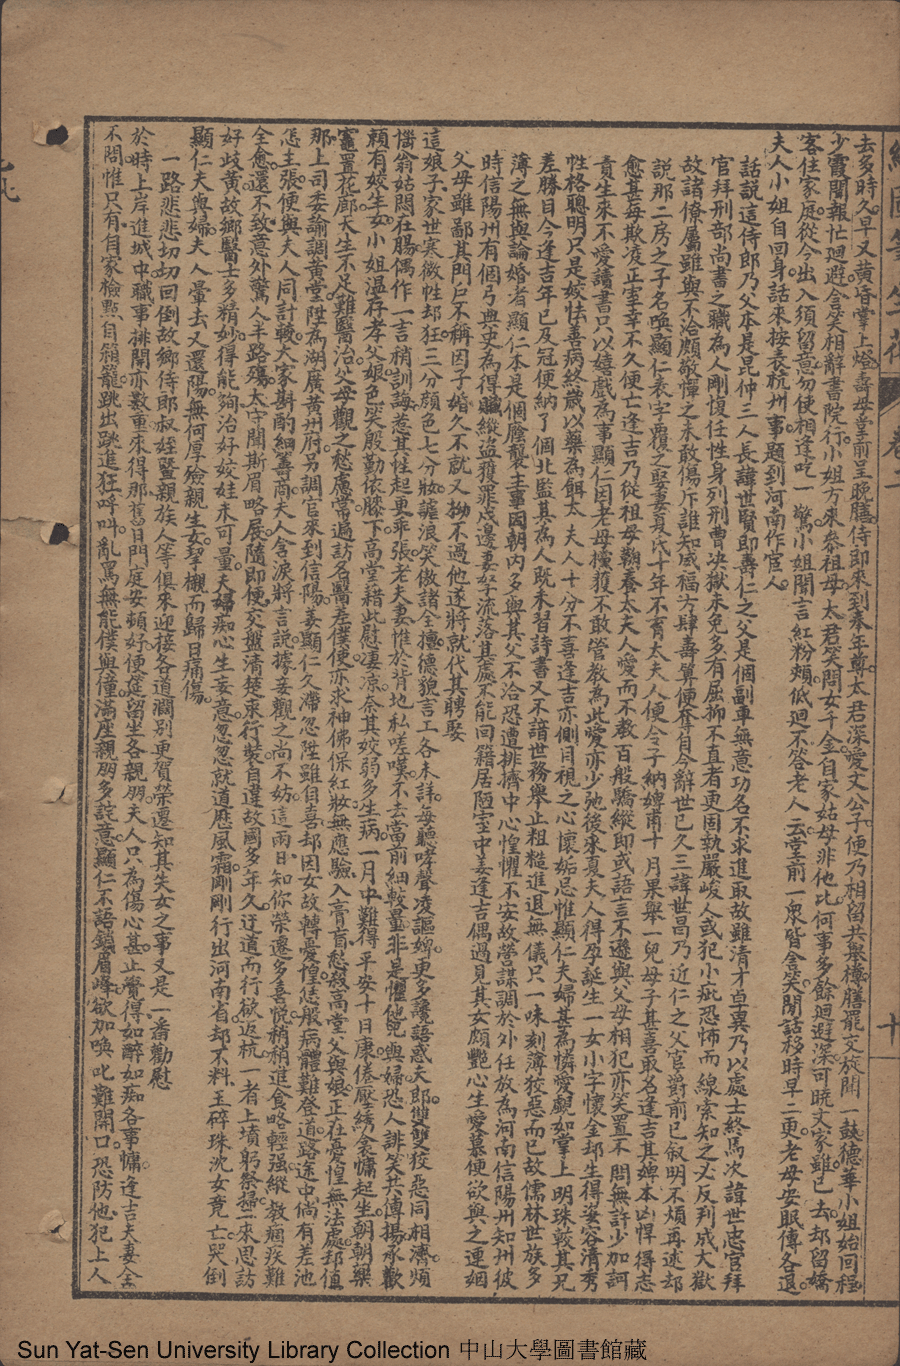 去多時久早又黃昏掌上燈壽母堂前呈晚膳侍郎來到奉年尊太君深愛文公子便乃相留共舉樽膳罷文旋聞一鼓德華小姐始回程
少霞聞報忙迴避含笑相辭書院行小姐方來參祖母太君笑問女千金自家姑母非他比何事多餘迴避深可曉文家雖已去却留嬌
客住家庭從今出入須留意勿使相逢吃一驚小姐聞言紅粉頰低迴不答老人云堂前一衆皆含笑閒話移時早二更老母安眠傳各退
夫人小姐自回身話來按表杭州事題到河南作宦人
話說這侍郎乃父本是昆仲三人長諱世賢即壽仁之父是個副車無意功名不求進取故雖清才卓異乃以處士終焉次諱世忠官拜
官拜刑部尚書之職為人剛愎任性身列刑曹决獄未免多有屈抑不直者更固執嚴峻人或犯小疵恐怖而線索知之必反判成大獄
故諸僚屬雖與不洽頗敬憚之未敢傷斥誰知威福方肆壽算便奪自今辭世已久三諱世昌乃近仁之父官爵前已叙明不煩再述却
說那二房之子名喚顯仁表字覆之娶妻夏氏十年不育太夫人便令子納婢甫十月果舉一兒母子甚喜取名逢吉其婢本凶悍得志
愈甚每每欺凌正室幸不久便亡逢吉乃從祖母鞠養太夫人愛而不教百般驕縱即或語言不遜與父母相犯亦笑置不問無許少加訶
責生來不愛讀書只以嬉戲為事顯仁因老母攩護不敢管教為此愛亦少弛後來夏夫人得孕誕生一女小字懷金却生得姿容清秀
性格聰明只是姣怯善病終歲以藥為餌太夫人十分不喜逢吉亦側目視之心懷妬忌惟顯仁夫婦甚為憐愛覷如掌上明珠較其兄
差勝目今逢吉年已及冠便納了個北監其為人既未習詩書又不諳世務舉止粗糙進退無儀只一味刻薄狡惡而已故儒林世族多
薄之無與論婚者顯仁本是個廕襲主事因朝內多與其父不洽恐遭排擠中心惶懼不安故營謀調於外任放為河南信陽州知州彼
時信陽州有個弓典史為得贓縱盗獲罪戍邊妻孥流落其處不能回籍居陋室中姜逢吉偶過見其女頗艷心生愛慕便欲與之連姻
父母雖鄙其門戶不稱因子婚久不就又拗不過他遂將就代其聘娶
這娘子家世寒微性却狂三分顏色七分妝謔浪笑傲諸全擅德貌言工各未詳每聽哮聲凌謳婢更多讒語惑夫郎雙雙狡惡同相濟煩
惱翁姑悶在腸偶作一言稍訓誨惹其性起更乖張老夫妻惟於背地私嗟嘆不去當前細較量非是懼兒與婦恐人誹笑共傳揚承歡
賴有姣生女小姐溫存孝父娘色笑殷勤依膝下高堂藉此慰凄凉奈其姣弱多生病一月中難得平安十日康倦壓綉衾慵起坐朝朝藥
竈置花廊天生不足難醫治父母觀之愁慮常遍訪名醫差僕使亦求神佛保紅妝無應驗入膏肓愁殺高堂父與娘正在憂惶無法處却值
那上司委論調黃堂陞為湖廣黃州府另調官來到信陽姜顯仁久滯忽陞雖自喜却因女故轉憂惶怎般病體難登道路途中倘有差池
怎主張便與夫人同計較大家斟酌細籌商夫人含淚將言說據妾觀之尚不妨這兩日知你榮遷多喜悅稍稍進食略輕强縱教痼疾難
全愈還不致意外驚人半路殤太守聞斯眉略展隨即便交盤清楚束行裝自違故國多年久迂道而行欲返杭一者上墳躬祭掃二來思訪
好歧黃故鄉醫士多精妙得能夠治好姣娃未可量夫婦痴心生妄意忽忽就道歷風霜剛剛行出河南省却不料玉碎珠沈女竟亡哭倒
顯仁夫與婦夫人暈去又還陽無何厚殮親生女挈櫬而歸日痛傷
一路悲悲切切回倒故鄉侍郎叔姪暨親族人等俱來迎接各道濶别更賀榮遷知其失女之事又是一番勸慰
於時上岸進城中職事排開亦數重來得那舊日門庭安頓好便筵留坐各親朋夫人只為傷心甚止覺得如醉如痴各事慵逢吉夫妻全
不問惟只有自家檢點自箱籠跳出跳進狂呼叫亂罵無能僕與僮滿座親朋多詫意顯仁不語鎖眉峰欲加喚叱難開口恐防他犯上人
卷二
十
Sun Yat-Sen University Library Collection 中山大學圖書館藏